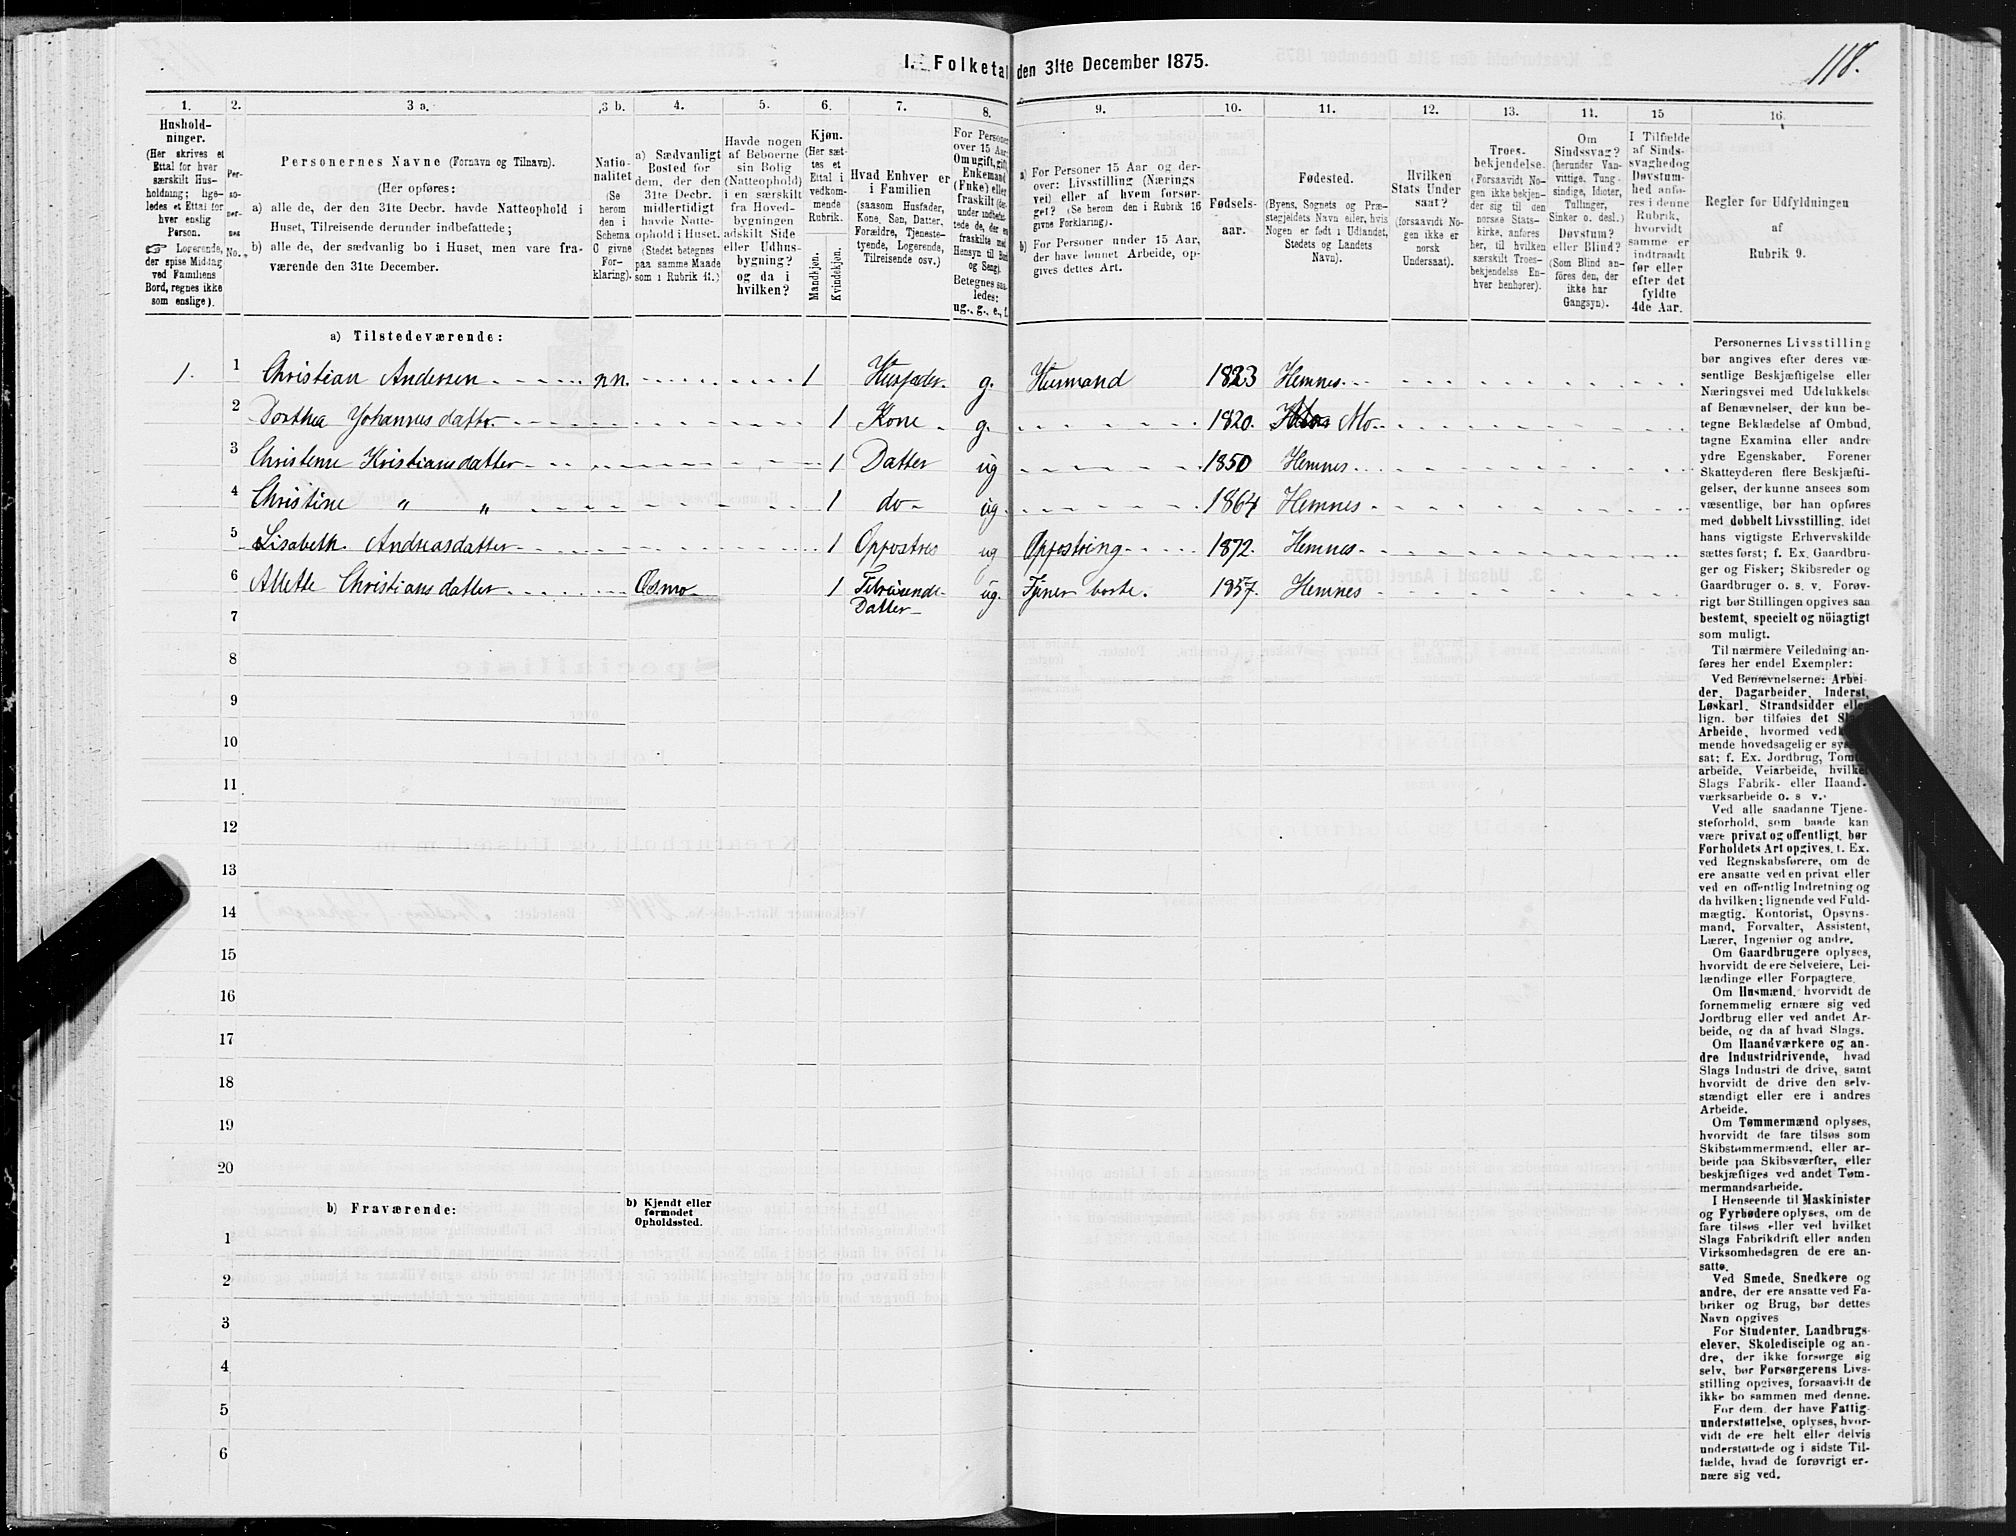 118.
1. Folketal den 31te December 1875.
1. 2. 3 a. 3 b. 4. 5. 6. 7. 8. 9. 10. 11. 12. 13. 14. 15 16.
Hushold-
ninger.
(Her skrives et
Ettal for hver
særskilt Hus-
holdning; lige-
ledes et Ettal for
hver enslig
Person.
☞ Logerende,
der spise Middag
ved Familiens
Bord, regnes ikke
som enslige).
Per-
so-
ner-
nes
No.
Personernes Navne (Fornavn og Tilnavn).
(Her opføres:
a) alle de, der den 31te Decbr. havde Natteophold i
Huset, Tilreisende derunder indbefattede;
b) alle de, der sædvanlig bo i Huset, men vare fra-
værende den 31te December.
Natio-
nalitet
(Se
herom
den i
Schema
C givne
For-
klaring).
a) Sædvanligt
Bosted for
dem, der den
31te Decbr.
midlertidigt
havde Natte-
ophold i Huset.
(Stedet betegnes
paa samme Maade
som i Rubrik 11.)
Havde nogen
af Beboerne
sin Bolig
(Natteophold)
i en særskilt
fra Hoved-
bygningen
adskilt Side
eller Udhus-
bygning?
og da i
hvilken?
Kjøn.
(Her sæt-
tes et
Ettal i
vedkom-
mende
Rubrik.
Mandkjøn.
Kvindekjøn.
Hvad Enhver er
i Familien
(saasom Husfader,
Kone, Søn, Datter,
Forældre, Tjeneste-
tyende, Logerende,
Tilreisende osv.)
For Personer
over 15 Aar:
Om ugift, gift,
Enkemand
(Enke) eller
fraskilt
Betegnes saa-
ledes:
ug., g., e., f.
a) For Personer 15 Aar og der-
over: Livsstilling (Nærings
vei) eller af hvem forsør-
get? (Se herom den i Rubrik 16
givne Forklaring).
b) For Personer under 15 Aar,
der have lønnet Arbeide, op-
gives dettes Art.
Fødsels-
aar.
Fødested.
(Byens, Sognets og Præ-
stegjeldets Navn eller, hvis
Nogen er født i Udlandet,
Stedets og Landets
Navn).
Hvilken
Stats Under
saat?
(forsaavidt No-
gen ikke er
norsk
Undersaat).
Troes-
bekjendelse.
(Forsaavidt No-
gen ikke bekjen-
der sig til den
norske Stats-
kirke, anføres
her, til hvilken
særskilt Troes-
bekjendelse En-
hver henhører).
Om
Sindssvag?
(herunder Van-
vittige, Tung-
sindige, Idioter,
Tullinger,
Sinker o. desl.)
Døvstum?
eller Blind?
(Som Blind an-
føres den, der
ikke har
Gangsyn).
I Tilfælde
af Sinds-
svaghed og
Døvstum-
hed anfø-
res i denne
Rubrik,
hvorvidt
samme er
indtraadt
før eller
efter det
fyldte
4de Aar.
Regler for Udfyldningen
af
Rubrik 9.
a) Tilstedeværende:
1. 1 Christian Andersen nn. 1 Husfader g. Husmand 1823 Hemnes
2 Dorthea Johannesdatter 1 Kone g. 1820. Mo
3 Christense Kristiansdatter 1 Datter ug 1850 Hemnes
4 Christine " " 1 do ug. 1864 Hemnes
5 Lisabeth Andreasdatter 1 Opfostres ug Opfostring 1872. Hemnes
6 Allette Christiansdatter Øsmo 1 Tilreisende Datter ug. Tjener borte. 1857. Hemnes
7
8
9
10
11
12
13
14
15
16
17
18
19
20
b) Fraværende:
b) Kjendt eller
formodet
Opholdssted.
1
2
3
4
5
6
Personernes Livsstilling
bør angives efter deres væ-
sentlige Beskjæftigelse eller
Næringsvei med Udelukkelse
af Benævnelser, der kun be-
tegne Beklædelse af Ombud,
tagne Examina eller andre
ydre Egenskaber. Forener
Skatteyderen flere Beskjæfti-
gelser, der kunne ansees som
væsentlige, bør han opføres
med dobbelt Livsstilling, idet
hans vigtigste Erhvervskilde
sættes først; f. Ex. Gaardbru-
ger og Fisker; Skibsreder og
Gaardbruger o. s. v. Forøv-
rigt bør Stillingen opgives saa
bestemt, specielt og nöiagtigt
som muligt.
Til nærmere Veiledning an-
føres her endel Exempler:
Ved Benævnelserne: Arbei-
der, Dagarbeider, Inderst,
Løskarl, Strandsidder eller
lign. bør tilføies det Slags
Arbeide, hvormed vedkom-
mende hovedsagelig er syssel-
sat; f. Ex. Jordbrug, Tomte-
arbeide, Veiarbeide, hvilket
Slags Fabrik- eller Haand-
værksarbeide o. s v.
Ved alle saadanne Tjene-
steforhold, som baade kan
være privat og offentligt, bør
Forholdets Art opgives, f. Ex.
ved Regnskabsførere, om de
ere ansatte ved en privat eller
ved en offentlig Indretning og
da hvilken; lignende ved Fuld-
mægtig, Kontorist, Opsyns-
mand, Forvalter, Assistent,
Lærer, Ingeniør og andre.
Om Gaardbrugere oplyses,
hvorvidt de ere Selveiere, Lei-
lændinge eller Forpagtere.
Om Husmænd, hvorvidt de
fornemmelig ernære sig ved
Jordbrug eller ved andet Ar-
beide, og da af hvad Slags.
Om Haandværkere og an-
dre Industridrivende, hvad
Slags Industri de drive, samt
hvorvidt de drive den selv-
stændigt eller ere i andres
Arbeide.
Om Tømmermænd oplyses,
hvorvidt de fare tilsøs som
Skibstømmermænd, eller ar-
beide paa Skibsværfter, eller
beskjæftiges ved andet Tøm-
mermandsarbeide.
I Henseende til Maskinister
og Fyrbødere oplyses, om de
fare tilsøs eller ved hvilket
Slags Fabrikdrift eller anden
Virksomhedsgren de ere an-
satte.
Ved Smede, Snedkere og
andre, der ere ansatte ved Fa-
briker og Brug, bør dettes
Navn opgives
For Studenter, Landbrugs-
elever, Skoledisciple og an-
dre, der ikke forsørge sig
selv, bør Forsørgerens Livs-
stilling opgives, forsaavidt de
ikke bo sammen med denne.
For dem, der have Fattig-
understøttelse, oplyses, hvor-
vidt de ere helt eller delvis
understøttede og i sidste Til-
fælde, hvad de forøvrigt er-
nære sig ved.